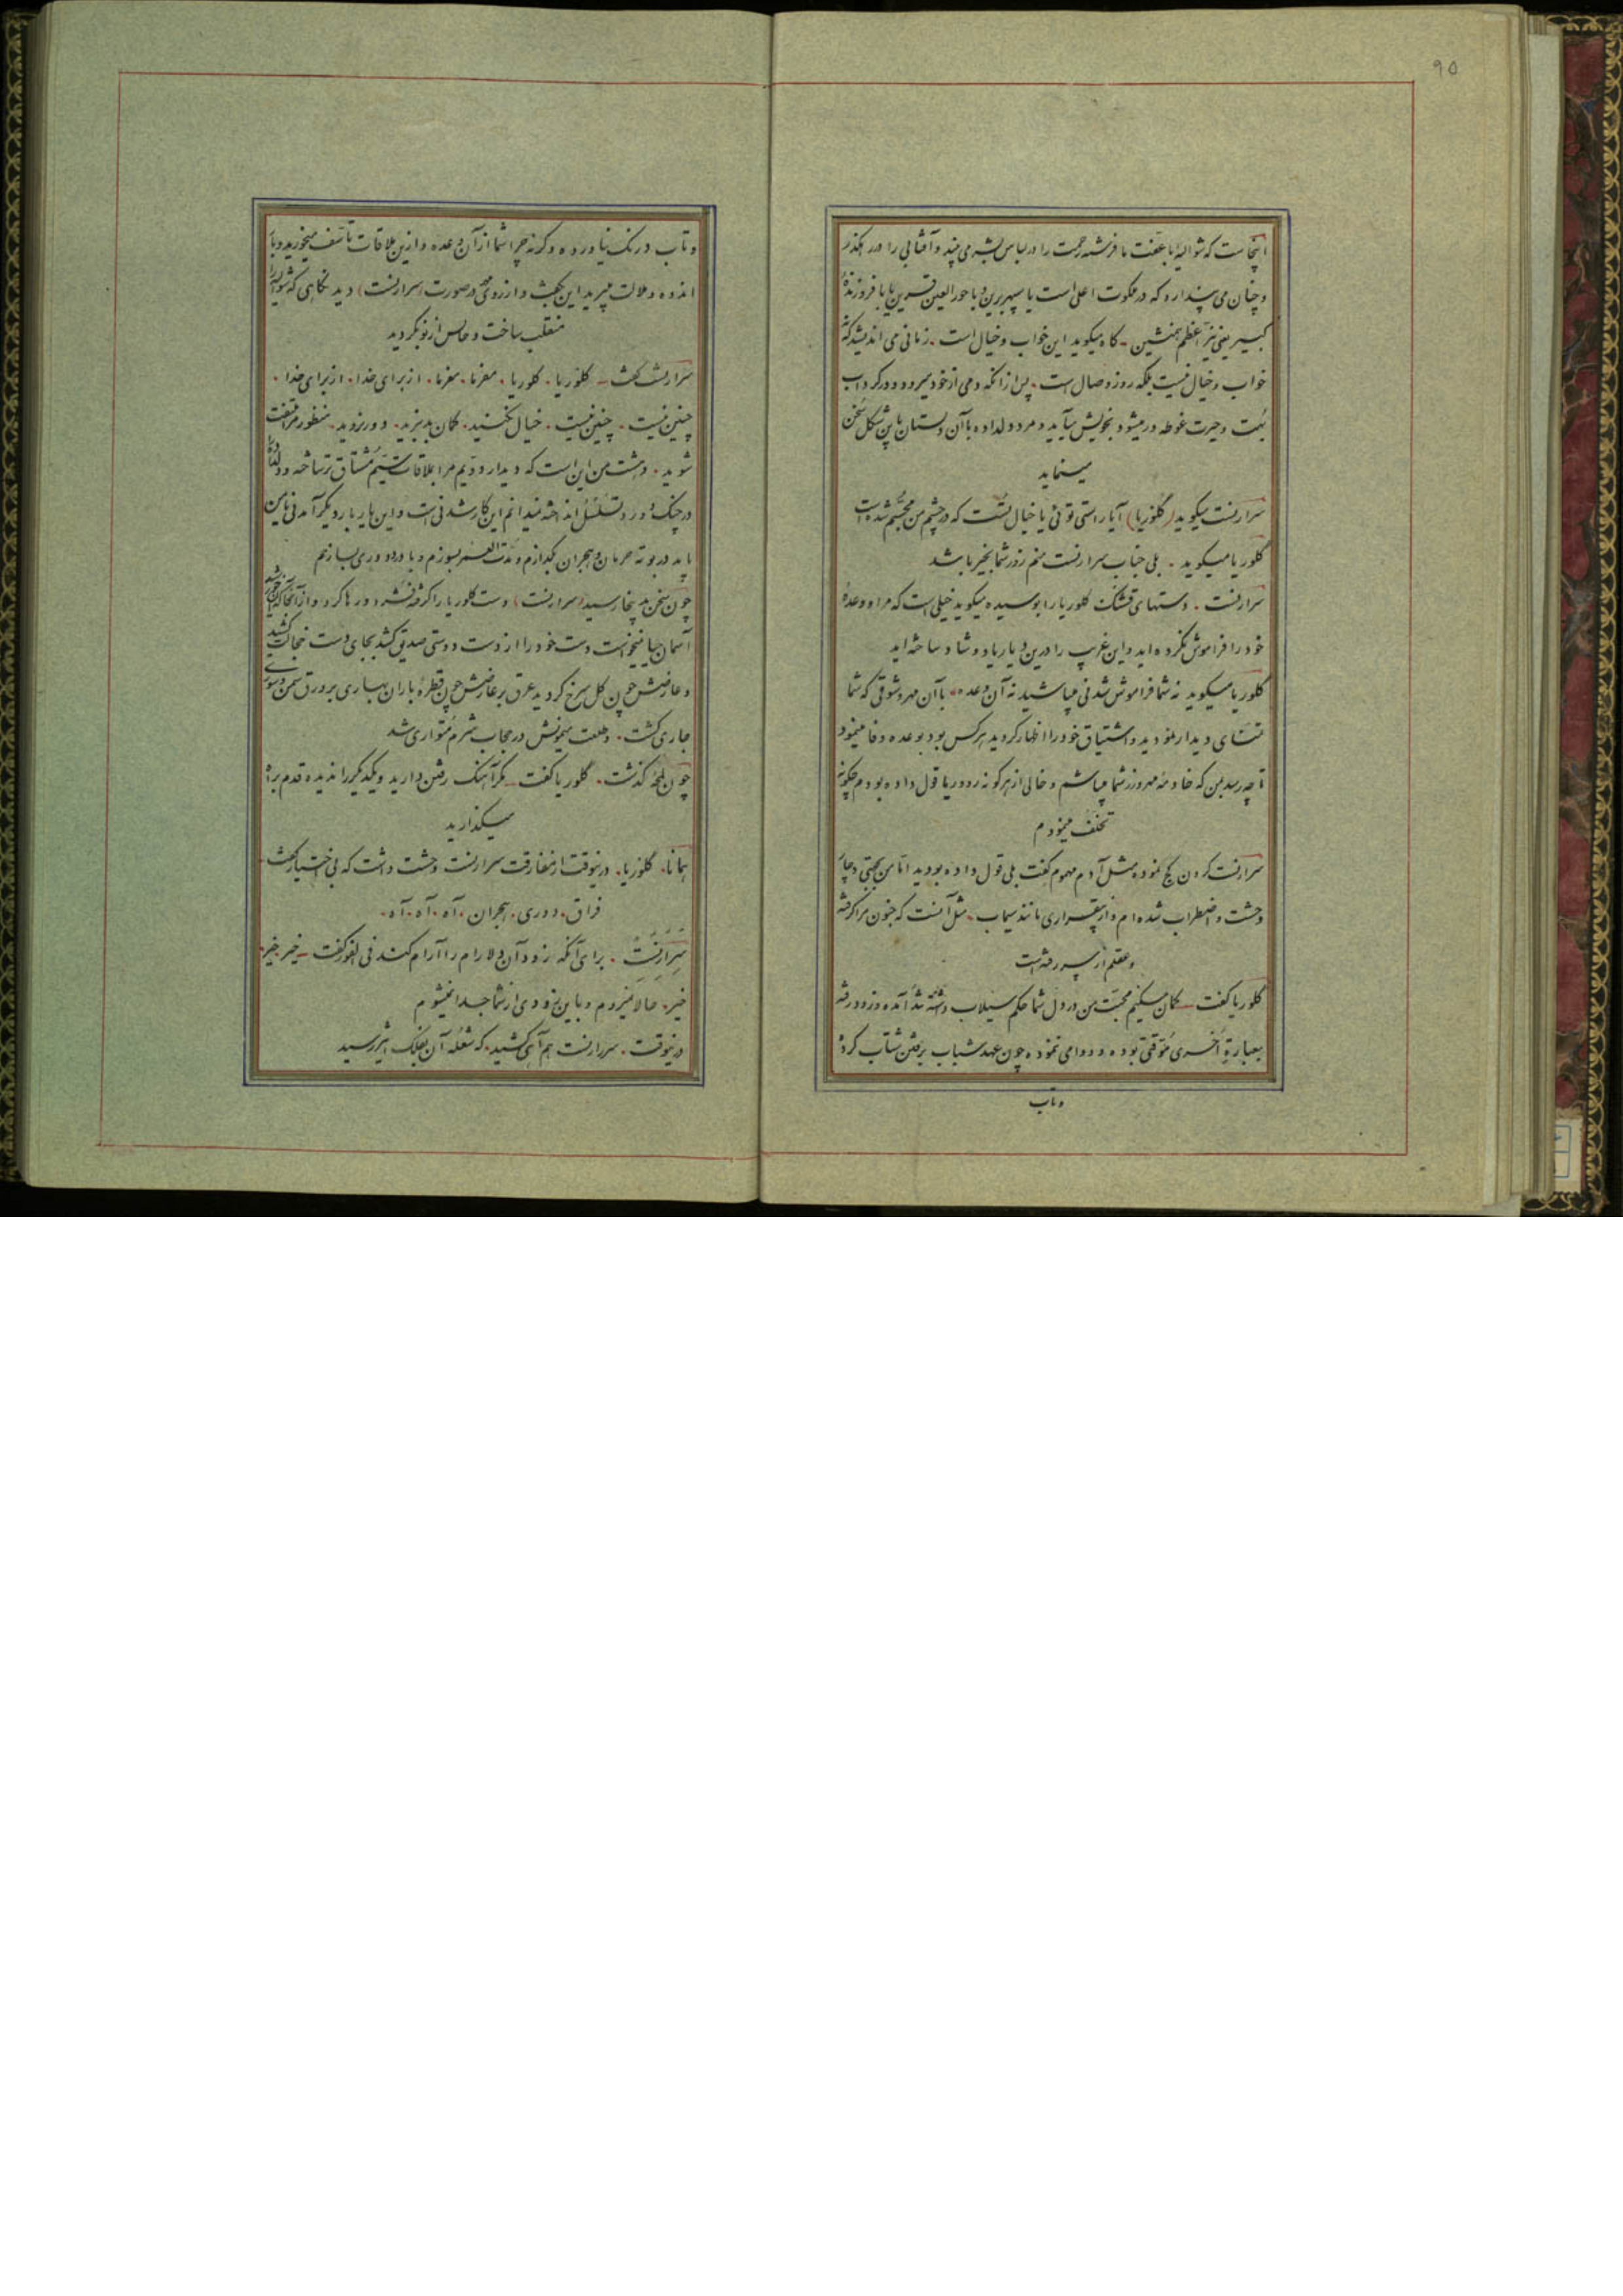 ۹۵
اینجاست که شوالیه با عفت ما فرشته رحمت را در لباس بشر می بیند و آفتابی را در رهگذر
و چنان می پندارد که در ملکوت اعلی است یا سپهر برین و با حورالعین قرین یا با فروزندهٔ
کبیر یعنی نیر اعظم همنشین - گاه میگوید این خواب و خیال است . زمانی می اندیشد که نه
خواب و خیال نیست بلکه روز وصال است . پس از آنکه دمی از خود میرود و در گرداب
بهت و حیرت غوطه ور میشود بخویش میآید و مرد دلداده با آن دلستان باین شکل سخن
مینماید
سرارنست میگوید (گلوریا) آیا راستی توئی یا خیال تست که در چشم من مجسم شده است
گلوریا میگوید . بلی جناب سرارنست منم روز شما بخیر باشد
سرارنست . دستهای قشنگ گلوریا را بوسیده میگوید خیلی است که مرا و وعدهٔ
خود را فراموش نکرده اید و این غریب را درین دیار یاد و شاد ساخته اید
گلوریا میگوید نه شما فراموش شدنی میباشید نه آن وعده . با آن مهر و شوقی که شما
تمنای دیدار نمودید و اشتیاق خود را اظهار کردید هر کس بود بوعده وفا مینمود
تا چه رسد بمن که خادمه مهرورز شما میباشم و خالی از هر گونه زرد و ریا قول داده بودم چگونه
تخلف مینمودم
سرارنست گردن کج نموده مثل آدم مهموم گفت بلی قول داده بودید اما من بجهتی دچار
وحشت و اضطراب شده ام و از بیقراری مانند سیماب . مثل آنست که جنون مرا گرفته
و عقلم از سر رفته است
گلوریا گفت - گمان میکنیم محبت من در دل شما حکم سیلاب داشته تند آمده و زود رفته
بعبارة اخری موقتی بوده و دوامی ننموده چون عهد شباب برفتن شتاب کرده
و تاب
و تاب درنگ نیاورده و گرنه چرا شما از آن وعده و ازین ملاقات تأسف میخورید و با
اندوه و ملالت میبرید این بگفت و از روی مهر در صورت (سرارنست) دید نگاهی که شوالیه را
منقلب ساخت و حالش از نو بگردید
سرارنست گفت - گلوریا . گلوریا . مفرما . مفرما . از برای خدا . از برای خدا .
چنین نیست . چنین نیست . خیال نکنید . گمان بد نبرید . دور نروید . منظور مرا ملتفت
شوید . وحشت من این است که دیدار دویم مرا بملاقات سیم مشتاق تر ساخته و دلداده
در چنگ دور و تسلسل انداخته نمیدانم این کار شدنی است و این یار بار دیگر آمدنی یا من
باید در بوته حرمان و هجران بگدازم و مدت العمر بسوزم و با درد دوری بسازم
چون سخن بدینجا رسید (سرارنست) دست گلوریا را گرفته فشرد و رها کرد و از آنجا که خورشید
آسمان حیا نمیخواست دست خود را از دست دوستی صدیق کشد بجای دست خجالت کشید
و عارضش چون گل سرخ گردید عرق بر عارضش چون قطرهٔ باران بهاری بر ورق سمن و سوری
جاری گشت . و طلعت میمونش در حجاب شرم متواری شد
چون لمحهٔ گذشت . گلوریا گفت - مگر آهنگ رفتن دارید و یکدیگر را ندیده قدم براه
میگذارید
همانا . گلوریا . درینوقت از مفارقت سرارنست وحشت داشت که بی اختیار گفت .
فراق . دوری . هجران . آه . آه . آه .
سرارنست . برای آنکه زود آن دلارام را آرام کند فی الفور گفت - خیر . خیر .
خیر . حالا نمیروم و باین زودی از شما جدا نمیشوم
درینوقت . سرارنست هم آهی کشید . که شعله آن بفلک اثیر رسید